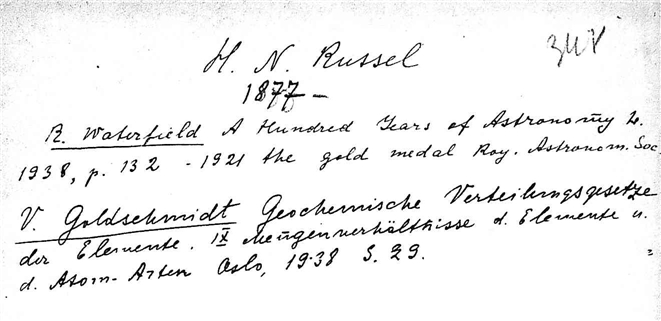 H. N. Russel
1877 –
R. Waterfield A Hundred Years of Astronomy L.
1938, p. 132 - 1921 the gold medal Roy. Astronom. Soc.
V. Goldschmidt Geochemische Verteilungsgesetze
der Elemente. IX Mengenverhältnisse d. Elemente u.
d. Atom-Arten Oslo, 1938 S. 29.